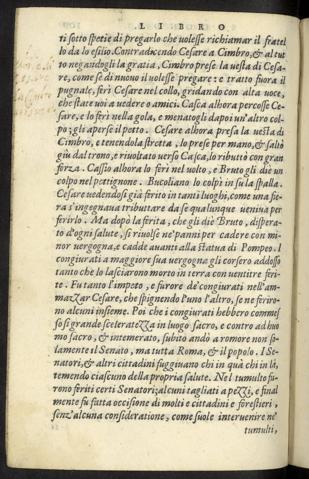 LIBRO
ri sotto spetie di pregarlo che uolesse richiamar il fratel
lo da lo esilio. Contradicendo Cesare a Cimbro, & al tut
to negandogli la gratia, Cimbro prese la uesta di Cesa-
re, come se di nuouo il uolesse pregare: e tratto fuora il
pugnale, ferì Cesare nel collo, gridando con alta uoce,
che state uoi a uedere o amici. Casca alhora percosse Ce-
sare, e lo ferì nella gola, e menatogli dapoi un'altro col-
po; gli aperse il petto. Cesare alhora presa la uesta di
Cimbro, e tenendola stretta, lo prese per mano, & saltò
giu dal trono, e riuoltato uerso Casca, lo ributtò con gran
forza. Cassio alhora lo ferì nel uolto, e Bruto gli die un
colpo nel pettignone. Bucoliano lo colpì in su la spalla.
Cesare uedendosi già ferito in tanti luoghi, come una fie-
ra s'ingegnaua ributtare da se qualunque ueniua per
ferirlo. Ma dopò la ferita, che gli diè Bruto, dispera-
to d'ogni salute, si riuolse ne' panni per cadere con mi-
nor uergogna, e cadde auanti alla statua di Pompeo. I
congiurati a maggiore sua uergogna gli corsero addosso
tanto che lo lasciarono morto in terra con uentitre feri-
te. Fu tanto l'impeto, e furore de' congiurati nell'am-
mazzar Cesare, che spignendo l'uno l'altro, se ne feriro-
no alcuni insieme. Poi che i congiurati hebbero commes
so si grande sceleratezza in luogo sacro, e contro ad huo
mo sacro, & intemerato, subito andò a romore non so-
lamente il Senato, ma tutta Roma, & il popolo. I Se-
natori, & altri cittadini fuggiuano chi in quà chi in là,
temendo ciascuno della propria salute. Nel tumulto fu-
rono feriti certi Senatori; alcuni tagliati a pezzi, e final
mente fu fatta occisione di molti e cittadini e forestieri,
senz'alcuna consideratione, come suole interuenire ne'
tumulti,